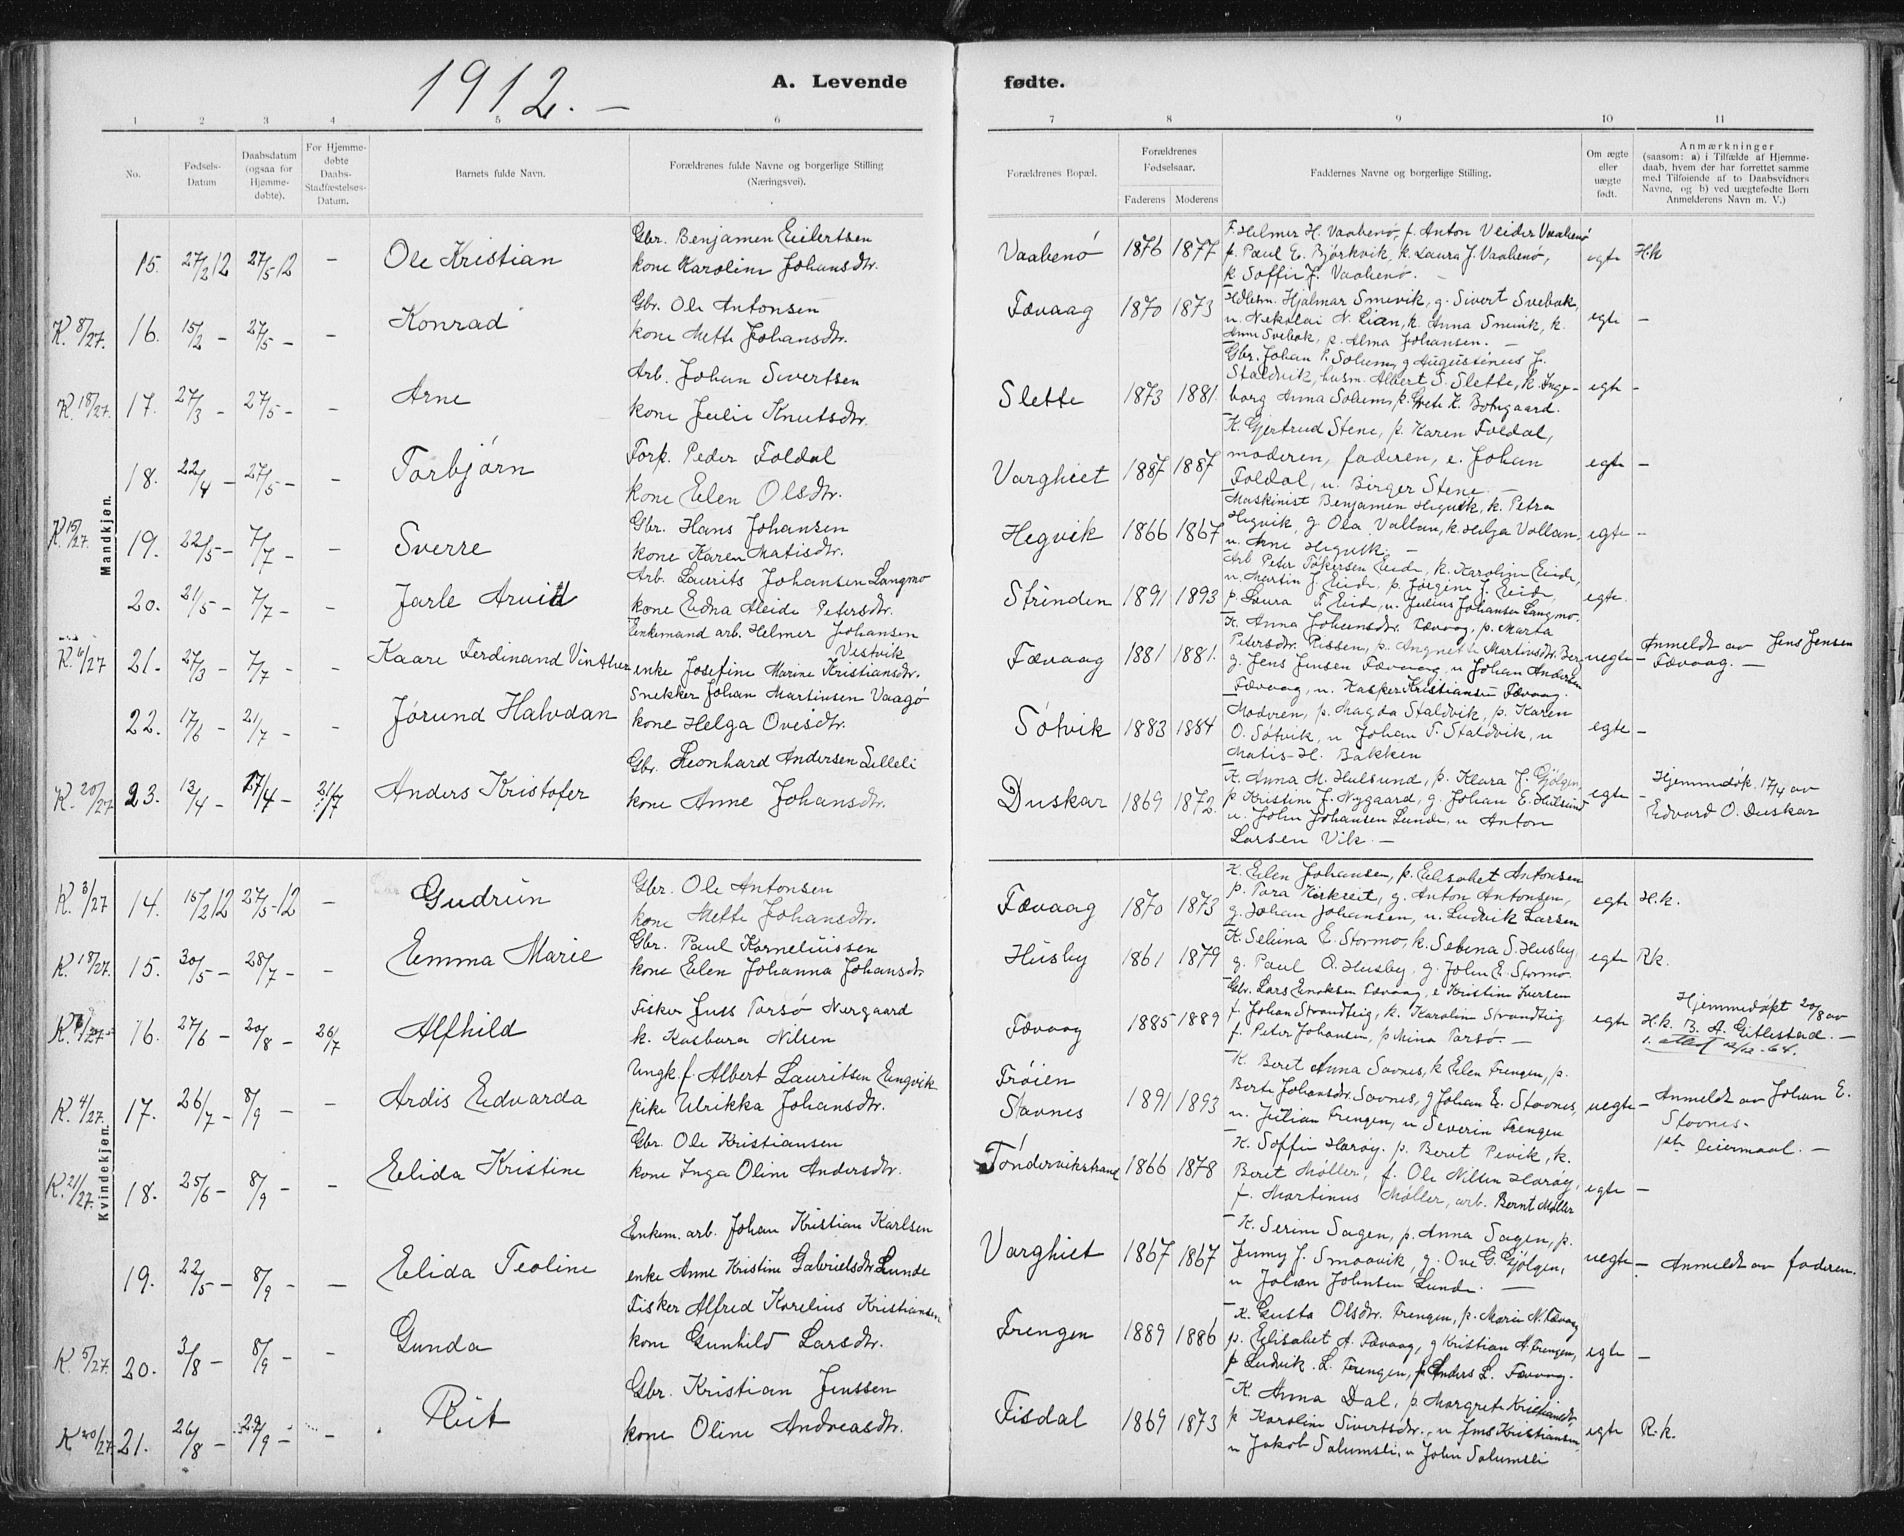 1912. —
A. Levende fødte.
1 2 3 4 5 6 7 8 9 10 11
No.
Fødsels-Datum
Daabsdatum (ogsaa for Hjemmedøbte).
For Hjemmedøbte Daabs-Stadfæstelses-Datum.
Barnets fulde Navn.
Forældrenes fulde Navne og borgerlige Stilling (Næringsvei).
Forældrenes Bopæl.
Forældrenes Fødselsaar.
Faderens Moderens
Faddernes Navne og borgerlige Stilling.
Om ægte eller uægte født.
Anmærkninger
(saasom: a) i Tilfælde af Hjemmedaab, hvem der har forrettet samme med Tilføiende af to Daabsvidners Navne, og b) ved uægtefødte Børn Anmelderens Navn m. V.)
Mandkjøn.
15. 27/2 12 27/5 12 — Ole Kristian
Gbr. Benjamen Eilertsen
kone Karoline Johansdtr.
Vaabenø 1876 1877
F. Helmer H. Vaabenø, f. Anton Veider Vaabenø
p. Paul E. Bjørkvik, k. Laura J. Vaabenø,
k. Soffie J. Vaabenø. —
egte H.k
K. 8/27. 16. 15/2 — 27/5 — — Konrad
Gbr. Ole Antonsen
kone Mette Johansdtr.
Fævaag 1870 1873
Hjalmar Smevik, g. Sivert Svebak,
u. Nekolai N. Lian, k. Anna Smevik, k.
Anna Svebak, p. Alma Johansen. —
egte —
K. 18/27. 17. 27/3 — 27/5 — — Arne
Arb. Johan Sivertsen
kone Julie Knutsdtr.
Slette 1873 1881.
Gbr. Johan P. Solum, g. Augustinus J.
Staldvik, husm. Albert S. Slette, k. Inge-
borg Anna Solum, p. Grete K. Botngaard.
egte —
18. 22/4 — 27/5 — — Torbjørn
Forp. Peder Foldal
kone Elen Olsdtr.
Varghiet 1887 1887
K. Gjertrud Stene, p. Karen Foldal,
moderen, faderen, e. Johan
Foldal, u. Birger Stene. —
egte —
K. 15/27. 19. 22/5 — 7/7 — — Sverre
Gbr. Hans Johansen
kone Karen Matisdtr.
Hegvik 1866 1867
Maskinist Benjamen Hegvik, k. Petra
Hegvik, g. Ola Vallan, k. Helga Vallan,
u. Arne Hegvik. —
egte —
20. 21/5 — 7/7 — — Jarle Arvid
Arb. Laurits Johansen Langmo
kone Edna Aleide Petersdtr.
Strinden 1891 1893
Arb Peter Eide, k. Karoline Eide,
u. Martin J. Eide, p. Jørgine J. Eide,
p. Laura F. Eide, u. Julius Johansen Langmo.
egte.
K. 6/27 21. 27/3 — 7/7 — — Kaare Ferdinand Vinther
Enkemand arb. Helmer Johansen
Vestvik
enke Josefine Marine Kristiansdtr.
Fævaag 1881 1881.
K. Anna Johansdtr. Fævaag, p. Marta
Petersdtr. Rissen, p. Angnete Martinsdtr. Ber
g. Jens Jensen Fævaag, u. Johan Andersen
Fævaag, u. Kasper Kristiansen Fævaag.
uegte — Anmeldt av Jens Jensen
Fævaag. —
22. 17/6 — 21/7 — — Jørund Halvdan
Snekker Johan Martinsen Vaagø
kone Helga Ovesdtr.
Søtvik 1883 1884
Moderen, p. Magda Staldvik, p. Karen
O. Søtvik, u Johan P. Staldvik, u
Matis H. Bakken
egte —
K. 20/27 23. 13/4 — 17/4 — 21/7 Anders Kristofer
Gbr. Leonhard Andersen Lilleli
kone Anne Johansdtr.
Duskar 1869 1872.
K. Anna M. Hulsund, p. Klara J. Gjølgen,
p Kristine J. Nygaard, g. Johan E. Hulsund
u. John Johansen Lunde, u Anton
Larsen Vik. —
egte — Hjemmedøk 17/4 av
Edvard O. Duskar
Kvindekjøn.
K. 8/27 14. 15/2 12 27/5-12 — Gudrun
Gbr. Ole Antonsen
kone Mette Johansdtr.
Fævaag 1870 1873
K. Elen Johansen, p. Elisabet Antonsen
p. Tora Kirkreit, g. Anton Antonsen,
g. Johan Johansen, u. Ludvik Larsen
egte H.k.
K. 18/27. 15. 30/5 — 28/7 — — Emma Marie
Gbr. Paul Korneliussen
kone Elen Johanna Johansdtr
Husby 1861 1879
K. Selina E. Stormo, k. Selina S. Husby
g. Paul O. Husby, g. John E. Stormo
egte Rk.
K. 6/27 16. 27/6 — 20/8 — 26/17 Alfhild
Fisker Juss Tarsø Nergaard
k. Kasbara Nilsen
Fævaag 1885 1889
Gbr. Lars Enoksen Fævaag, e Kristine Iversen
f. Johan Strandteig, k. Karoline Strandteig
f. Peter Johansen, p Mina Tarsø. —
egte Hjemmedøpt 20/8 av
H.k. B. A. Gitlestad. —
1. attest 12/12 - 64.
K. 4/27. 17. 26/7 — 8/9 — — Ardis Edvarda
Ungk. f. Albert Lauritsen Engvik
pike Ulrikka Johansdtr.
Frøien
Stavnes 1891 1893
K. Beret Anna Savnes, k Elen Frengen, p.
Berte Johansdtr. Savnes, g Johan E. Stavnes,
u. Julian Frengen, u Severin Frengen
uegte — Anmeldt av Johan E.
Stovnes -
leiermaal. —
K. 21/27. 18. 25/6 — 8/9 — — Elida Kristine
Gbr. Ole Kristiansen
kone Inga Oline Andersdtr.
Tøndervikstrand 1866 1878
K. Soffie Harøy, p. Beret Pevik, k.
Beret Møller, f. Ole Nilsen Harøy,
f. Martinus Møller, arb. Bernt Møller
egte —
19. 22/5 — 8/9 — — Elida Teoline
Enkem. arb. Johan Kristian Karlsen
enke Anne Kristine Gabrielsdtr. Lunde
Varghiet 1867 1867
K. Serine Sagen, p. Anna Sagen, p.
Jenny J. Smaavik, g. Ove G. Gjølgen,
u Johan Johnsen Lunde. —
uegte — Anmeldt av faderen.
K. 5/27 20. 3/8 — 8/9 — — Gunda
Fisker Alfred Korelius Kristiansen
kone Gunhild Larsdtr.
Frengen 1889 1886
K. Gusta Olsdtr. Frengen, p. Marie N. Fævaag
p. Elisabet A. Fævaag, g Kristian A. Frengen,
p Ludvik L. Frengen, p Anders L. Fævaag.
egte —
K 20/27 21. 26/8 — 29/9 — — Rut
Gbr. Kristian Jenssen
kone Oline Andreasdtr.
Fisdal 1869 1873
K. Anna Dal, p. Margrete Kristiansdtr
p Karoline Sivertsdtr., u Jens Kristiansen,
u Jakob Salumsli, u John Salumsli
egte R.k.